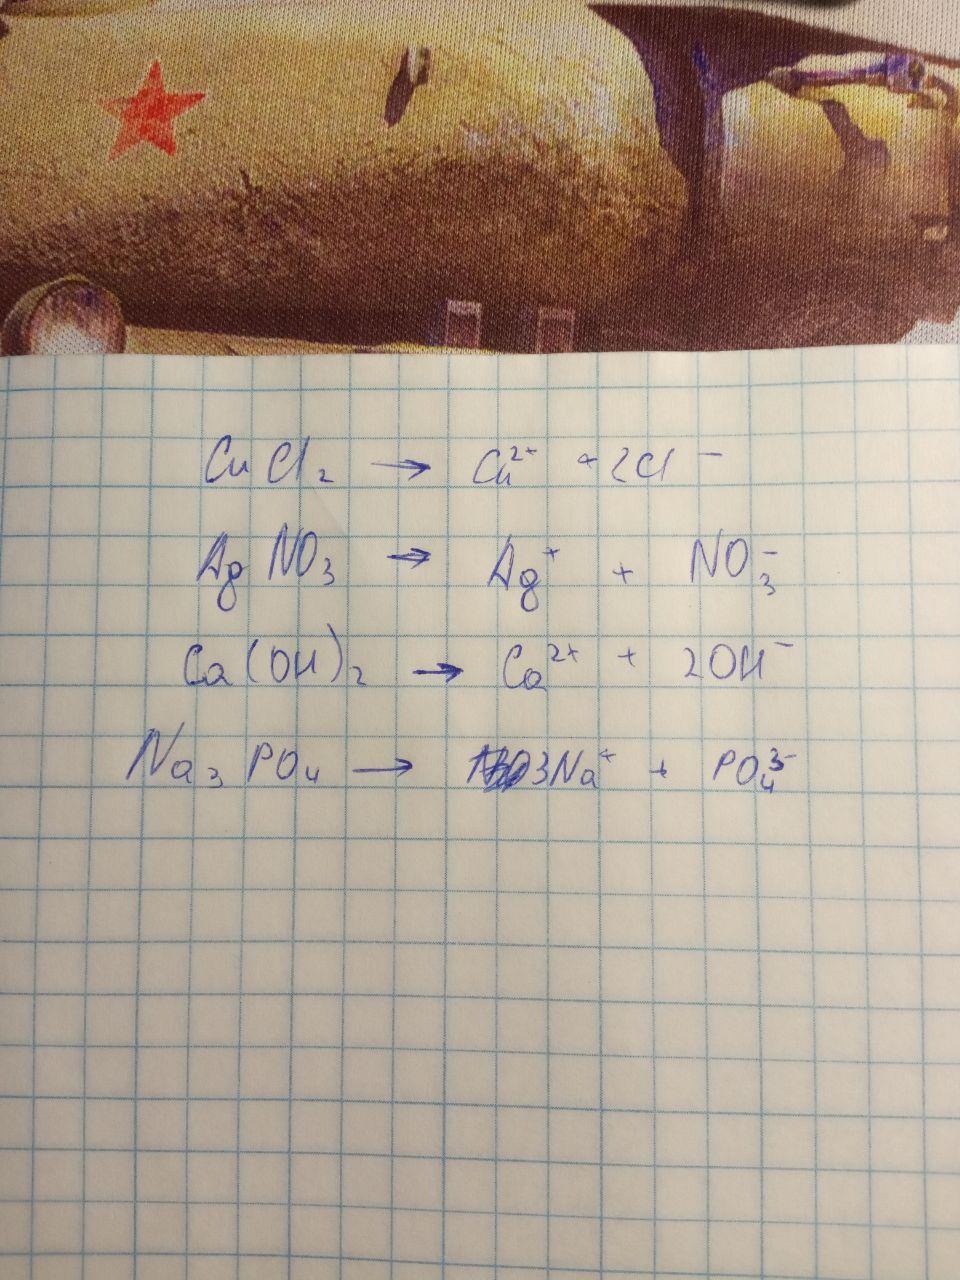 CuCl₂ → Cu²⁺ + 2Cl⁻
AgNO₃ → Ag⁺ + NO₃⁻
Ca(OH)₂ → Ca²⁺ + 2OH⁻
Na₃PO₄ → 3Na⁺ + PO₄³⁻